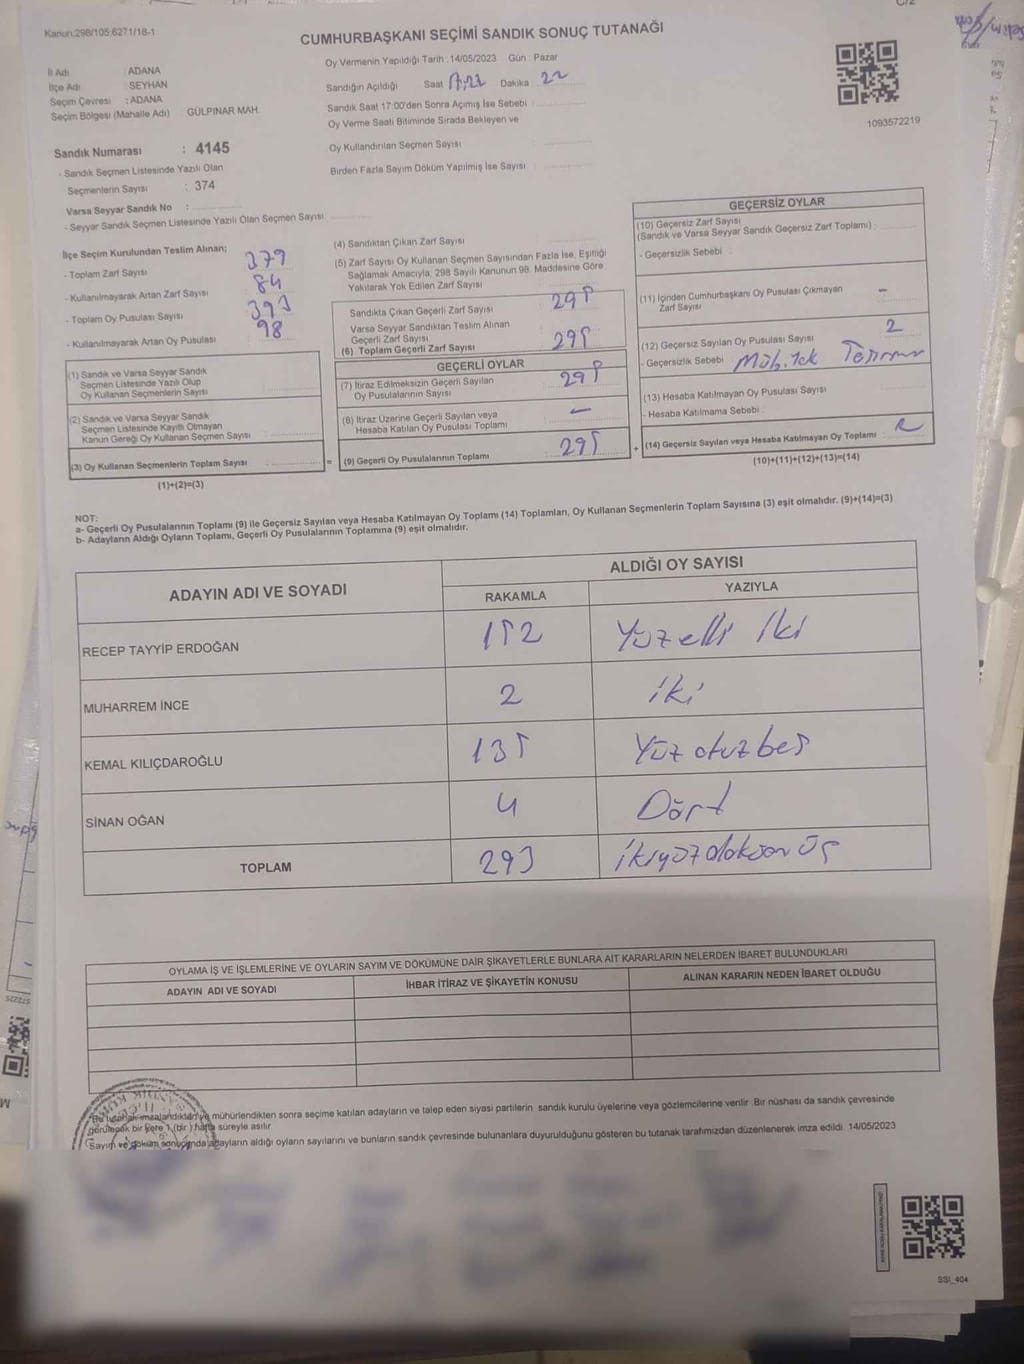 Kanun:298/105.6271/18-1
CUMHURBAŞKANI SEÇİMİ SANDIK SONUÇ TUTANAĞI
Oy Vermenin Yapıldığı Tarih : 14/05/2023 Gün : Pazar
İl Adı : ADANA
İlçe Adı : SEYHAN
Seçim Çevresi : ADANA
Seçim Bölgesi (Mahalle Adı) GÜLPINAR MAH.
Sandığın Açıldığı Saat 17:22 Dakika : 22
Sandık Saat 17:00'den Sonra Açımış İse Sebebi :
Oy Verme Saati Bitiminde Sırada Bekleyen ve
Oy Kullandırılan Seçmen Sayısı :
Birden Fazla Sayım Döküm Yapılmış İse Sayısı :
1093572219
Sandık Numarası : 4145
- Sandık Seçmen Listesinde Yazılı Olan
Seçmenlerin Sayısı : 374
Varsa Seyyar Sandık No :
- Seyyar Sandık Seçmen Listesinde Yazılı Olan Seçmen Sayısı:
İlçe Seçim Kurulundan Teslim Alınan;
- Toplam Zarf Sayısı 379
- Kullanılmayarak Artan Zarf Sayısı 84
- Toplam Oy Pusulası Sayısı 393
- Kullanılmayarak Artan Oy Pusulası 98
(1) Sandık ve Varsa Seyyar Sandık
Seçmen Listesinde Yazılı Olup
Oy Kullanan Seçmenlerin Sayısı :
(2) Sandık ve Varsa Seyyar Sandık
Seçmen Listesinde Kayıtlı Olmayan
Kanun Gereği Oy Kullanan Seçmen Sayısı :
(3) Oy Kullanan Seçmenlerin Toplam Sayısı :
(1)+(2)=(3)
(4) Sandıktan Çıkan Zarf Sayısı :
(5) Zarf Sayısı Oy Kullanan Seçmen Sayısından Fazla İse, Eşitliği
Sağlamak Amacıyla; 298 Sayılı Kanunun 98. Maddesine Göre
Yakılarak Yok Edilen Zarf Sayısı :
Sandıkta Çıkan Geçerli Zarf Sayısı : 295
Varsa Seyyar Sandıktan Teslim Alınan
Geçerli Zarf Sayısı :
(6) Toplam Geçerli Zarf Sayısı : 295
GEÇERLİ OYLAR
(7) İtiraz Edilmeksizin Geçerli Sayılan
Oy Pusulalarının Sayısı : 295
(8) İtiraz Üzerine Geçerli Sayılan veya
Hesaba Katılan Oy Pusulası Toplamı : -
= (9) Geçerli Oy Pusulalarının Toplamı : 295
GEÇERSİZ OYLAR
(10) Geçersiz Zarf Sayısı
(Sandık ve Varsa Seyyar Sandık Geçersiz Zarf Toplamı) :
- Geçersizlik Sebebi :
(11) İçinden Cumhurbaşkanı Oy Pusulası Çıkmayan
Zarf Sayısı : -
(12) Geçersiz Sayılan Oy Pusulası Sayısı : 2
- Geçersizlik Sebebi :
(13) Hesaba Katılmayan Oy Pusulası Sayısı :
- Hesaba Katılmama Sebebi :
+ (14) Geçersiz Sayılan veya Hesaba Katılmayan Oy Toplamı : 2
(10)+(11)+(12)+(13)=(14)
NOT:
a- Geçerli Oy Pusulalarının Toplamı (9) ile Geçersiz Sayılan veya Hesaba Katılmayan Oy Toplamı (14) Toplamları, Oy Kullanan Seçmenlerin Toplam Sayısına (3) eşit olmalıdır. (9)+(14)=(3)
b- Adayların Aldığı Oyların Toplamı, Geçerli Oy Pusulalarının Toplamına (9) eşit olmalıdır.
ADAYIN ADI VE SOYADI ALDIĞI OY SAYISI
RAKAMLA YAZIYLA
RECEP TAYYİP ERDOĞAN 152 Yüz elli iki
MUHARREM İNCE 2 iki
KEMAL KILIÇDAROĞLU 135 Yüz otuz beş
SİNAN OĞAN 4 Dört
TOPLAM 293 ikiyüz doksan üç
OYLAMA İŞ VE İŞLEMLERİNE VE OYLARIN SAYIM VE DÖKÜMÜNE DAİR ŞİKAYETLERLE BUNLARA AİT KARARLARIN NELERDEN İBARET BULUNDUKLARI
ADAYIN ADI VE SOYADI İHBAR İTİRAZ VE ŞİKAYETİN KONUSU ALINAN KARARIN NEDEN İBARET OLDUĞU
Bu tutanak imzalandıktan ve mühürlendikten sonra seçime katılan adayların ve talep eden siyasi partilerin sandık kurulu üyelerine veya gözlemcilerine verilir. Bir nüshası da sandık çevresinde
görülecek bir yere 1 (bir) hafta süreyle asılır.
Sayım ve döküm sonucunda adayların aldığı oyların sayılarını ve bunların sandık çevresinde bulunanlara duyurulduğunu gösteren bu tutanak tarafımızdan düzenlenerek imza edildi. 14/05/2023
SSI_404